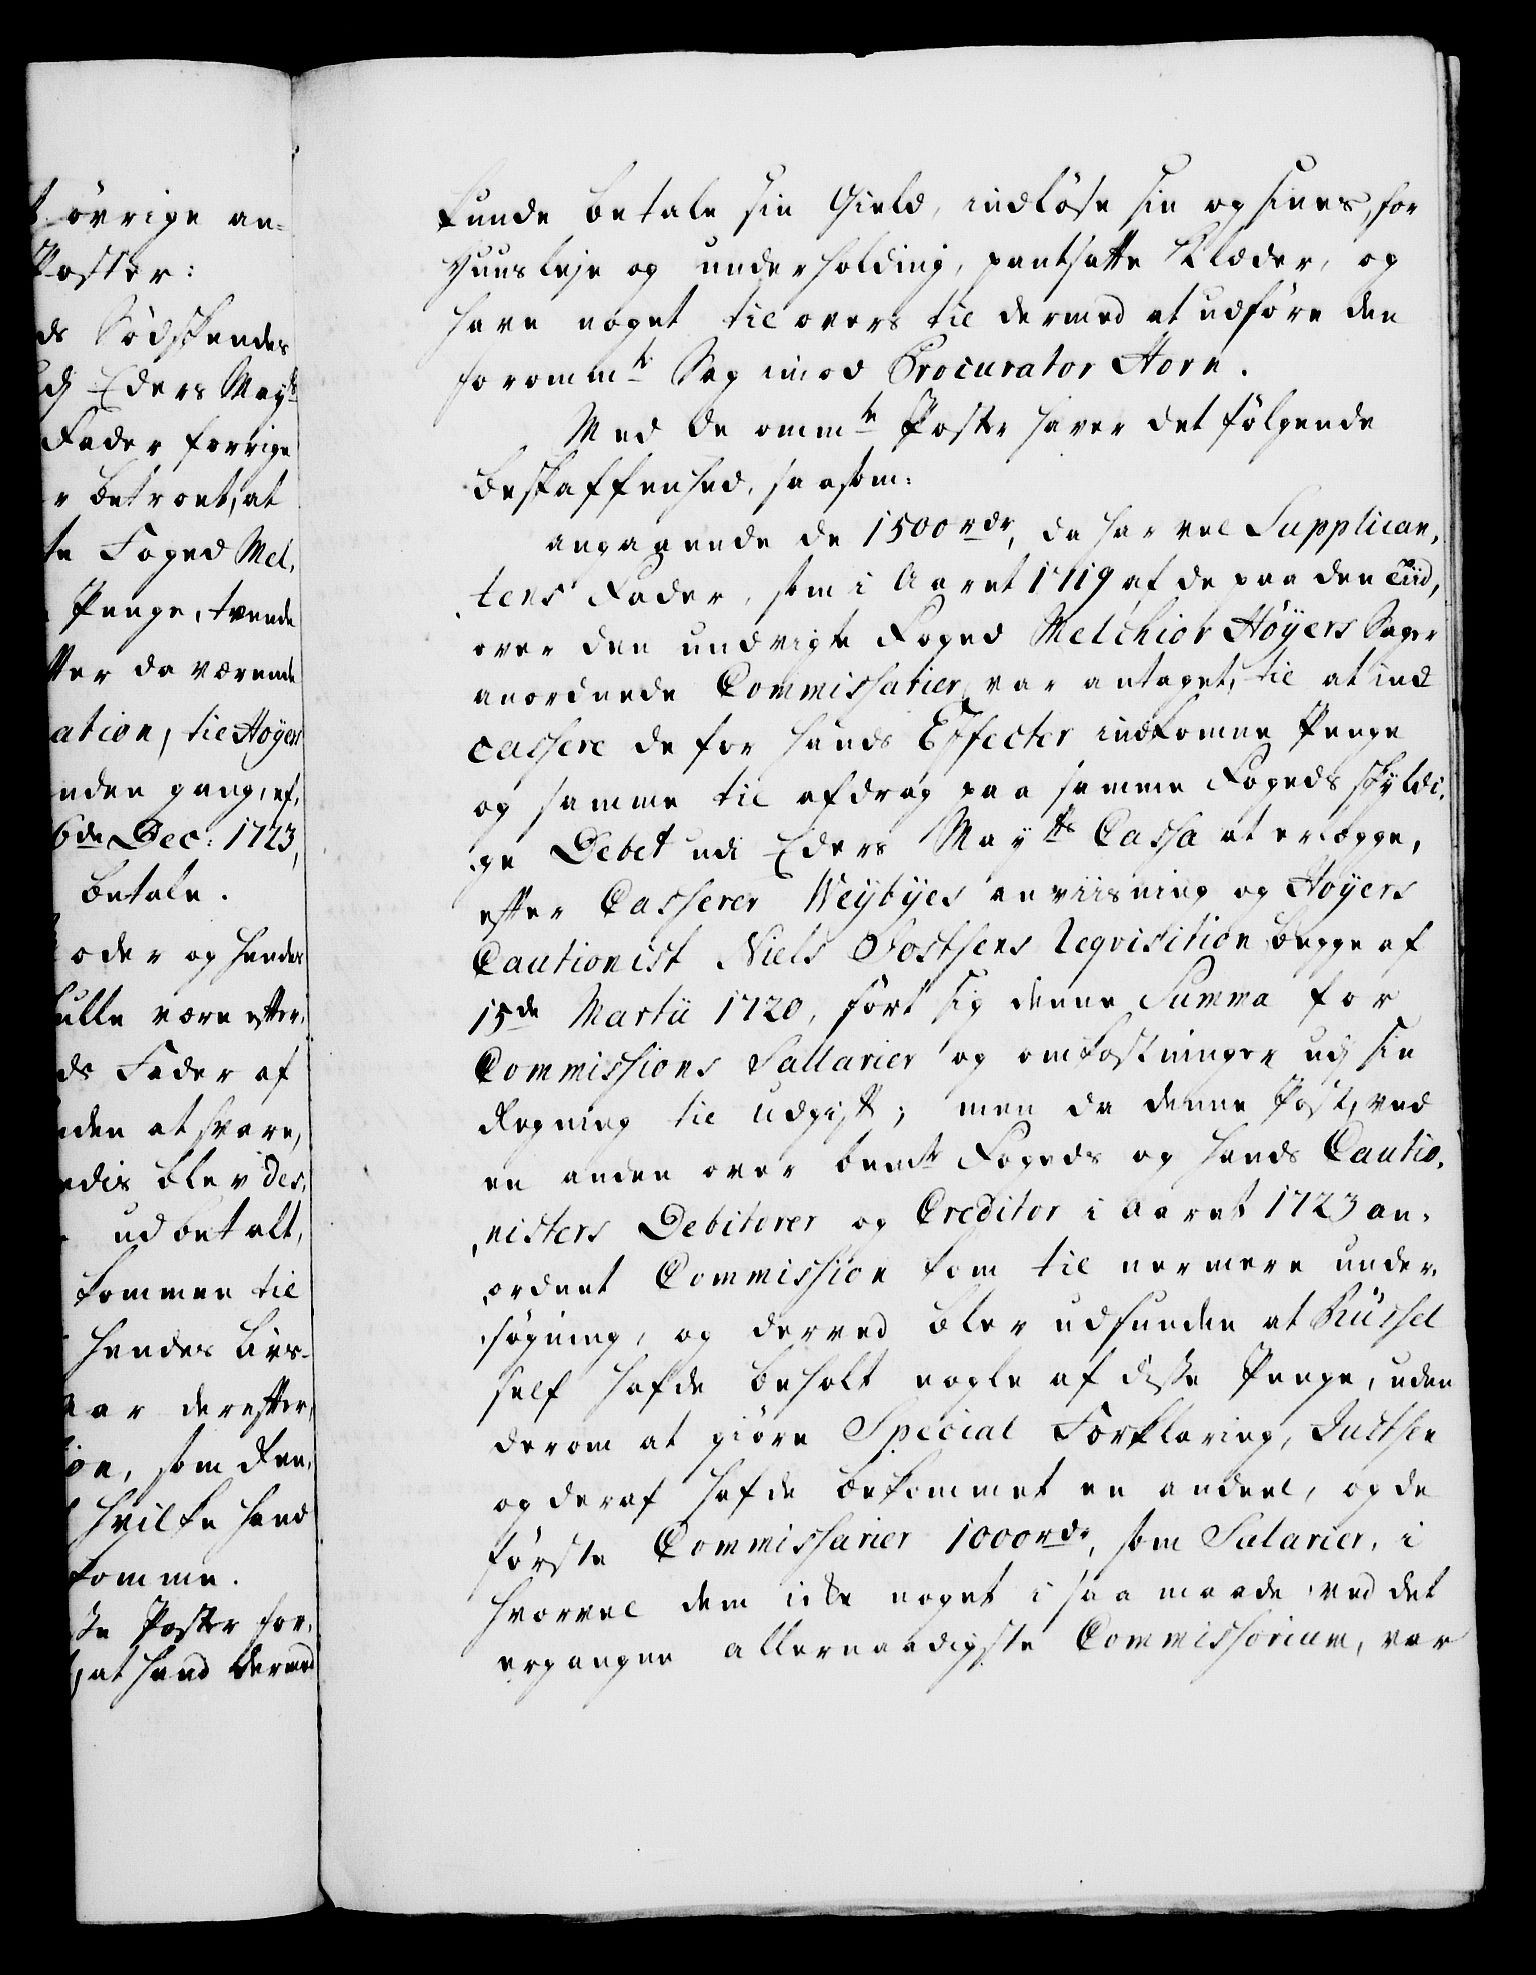 t övrige an-
Poster:
ds Södskendes
dj Eders Mayts
Fader forrige
r betroet, at
te Foged Mel,
Penge, tvende
tter da værende
ation, til Høyers
nden gang, ef,
6de Dec: 1723,
betale.
oder og hendes
ulle være efter,
ds Fader af
nden at svare,
edis blev des,
udbetalt,
kommen til
hendes Livs-
aar derefter,
ion, som Ren,
hvilke hand
komme.
ste Poster for,
, at hand dermed
kunde betale sin Gield, indlöse sin og sines, for
Huusleje og underholding, pantsatte Klæder, og
have noget til overs til dermed at udföre den
forommte Sag imod Procurator Horn.
Med de ommte Poster haver det fölgende
beskaffenhed, saasom:
angaaende de 1500 rdr, da har vel Supplican,
tens Fader, som i Aaret 1719 af de paa den Tiid,
over den undvigte Foged Melchior Höyers Sager
anordnede Commissarier, var antaget, til at ind
cassere de for hands Effecter indkomne Penge
og samme til afdrag paa samme Fogeds skyldi,
ge Debet udi Eders Mayts Cassa at erlægge,
efter Casserer Weybyes anviisning og Høyers
Cautionist Niels Jostsens Reqvisition begge af
15de Martii 1720, fört sig denne Summa for
Commissions Sallarier og omkostninger udj sin
Regning til udgift; men da denne Post, ved
en anden over bemte Fogeds og hands Cautio,
nisters Debitorer og Creditor i Aaret 1723 an,
ordnet Commission kom til nermere under,
sögning, og derved blev udfunden at Küssel
self hafde beholt nogle af disse Penge, uden
derom at giöre Special Forklaring, Justsen
og deraf hafde bekommet en andeel, og de
förste Commissarier 1000 rdr, som Salarier, i
hvorvel dem icke noget i saa maade ved det
ergangne allernaadigste Commissorium, var